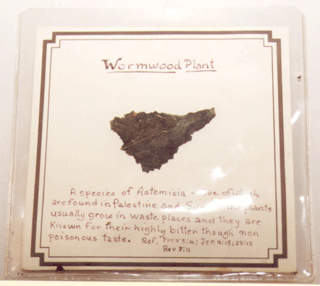 Wormwood Plant
A species of Astemisia - five of which
are found in Palestine and The plants
usually grow in waste places and they are
known for their highly bitter though non
poisonous taste. Ref,
Rev 8:11